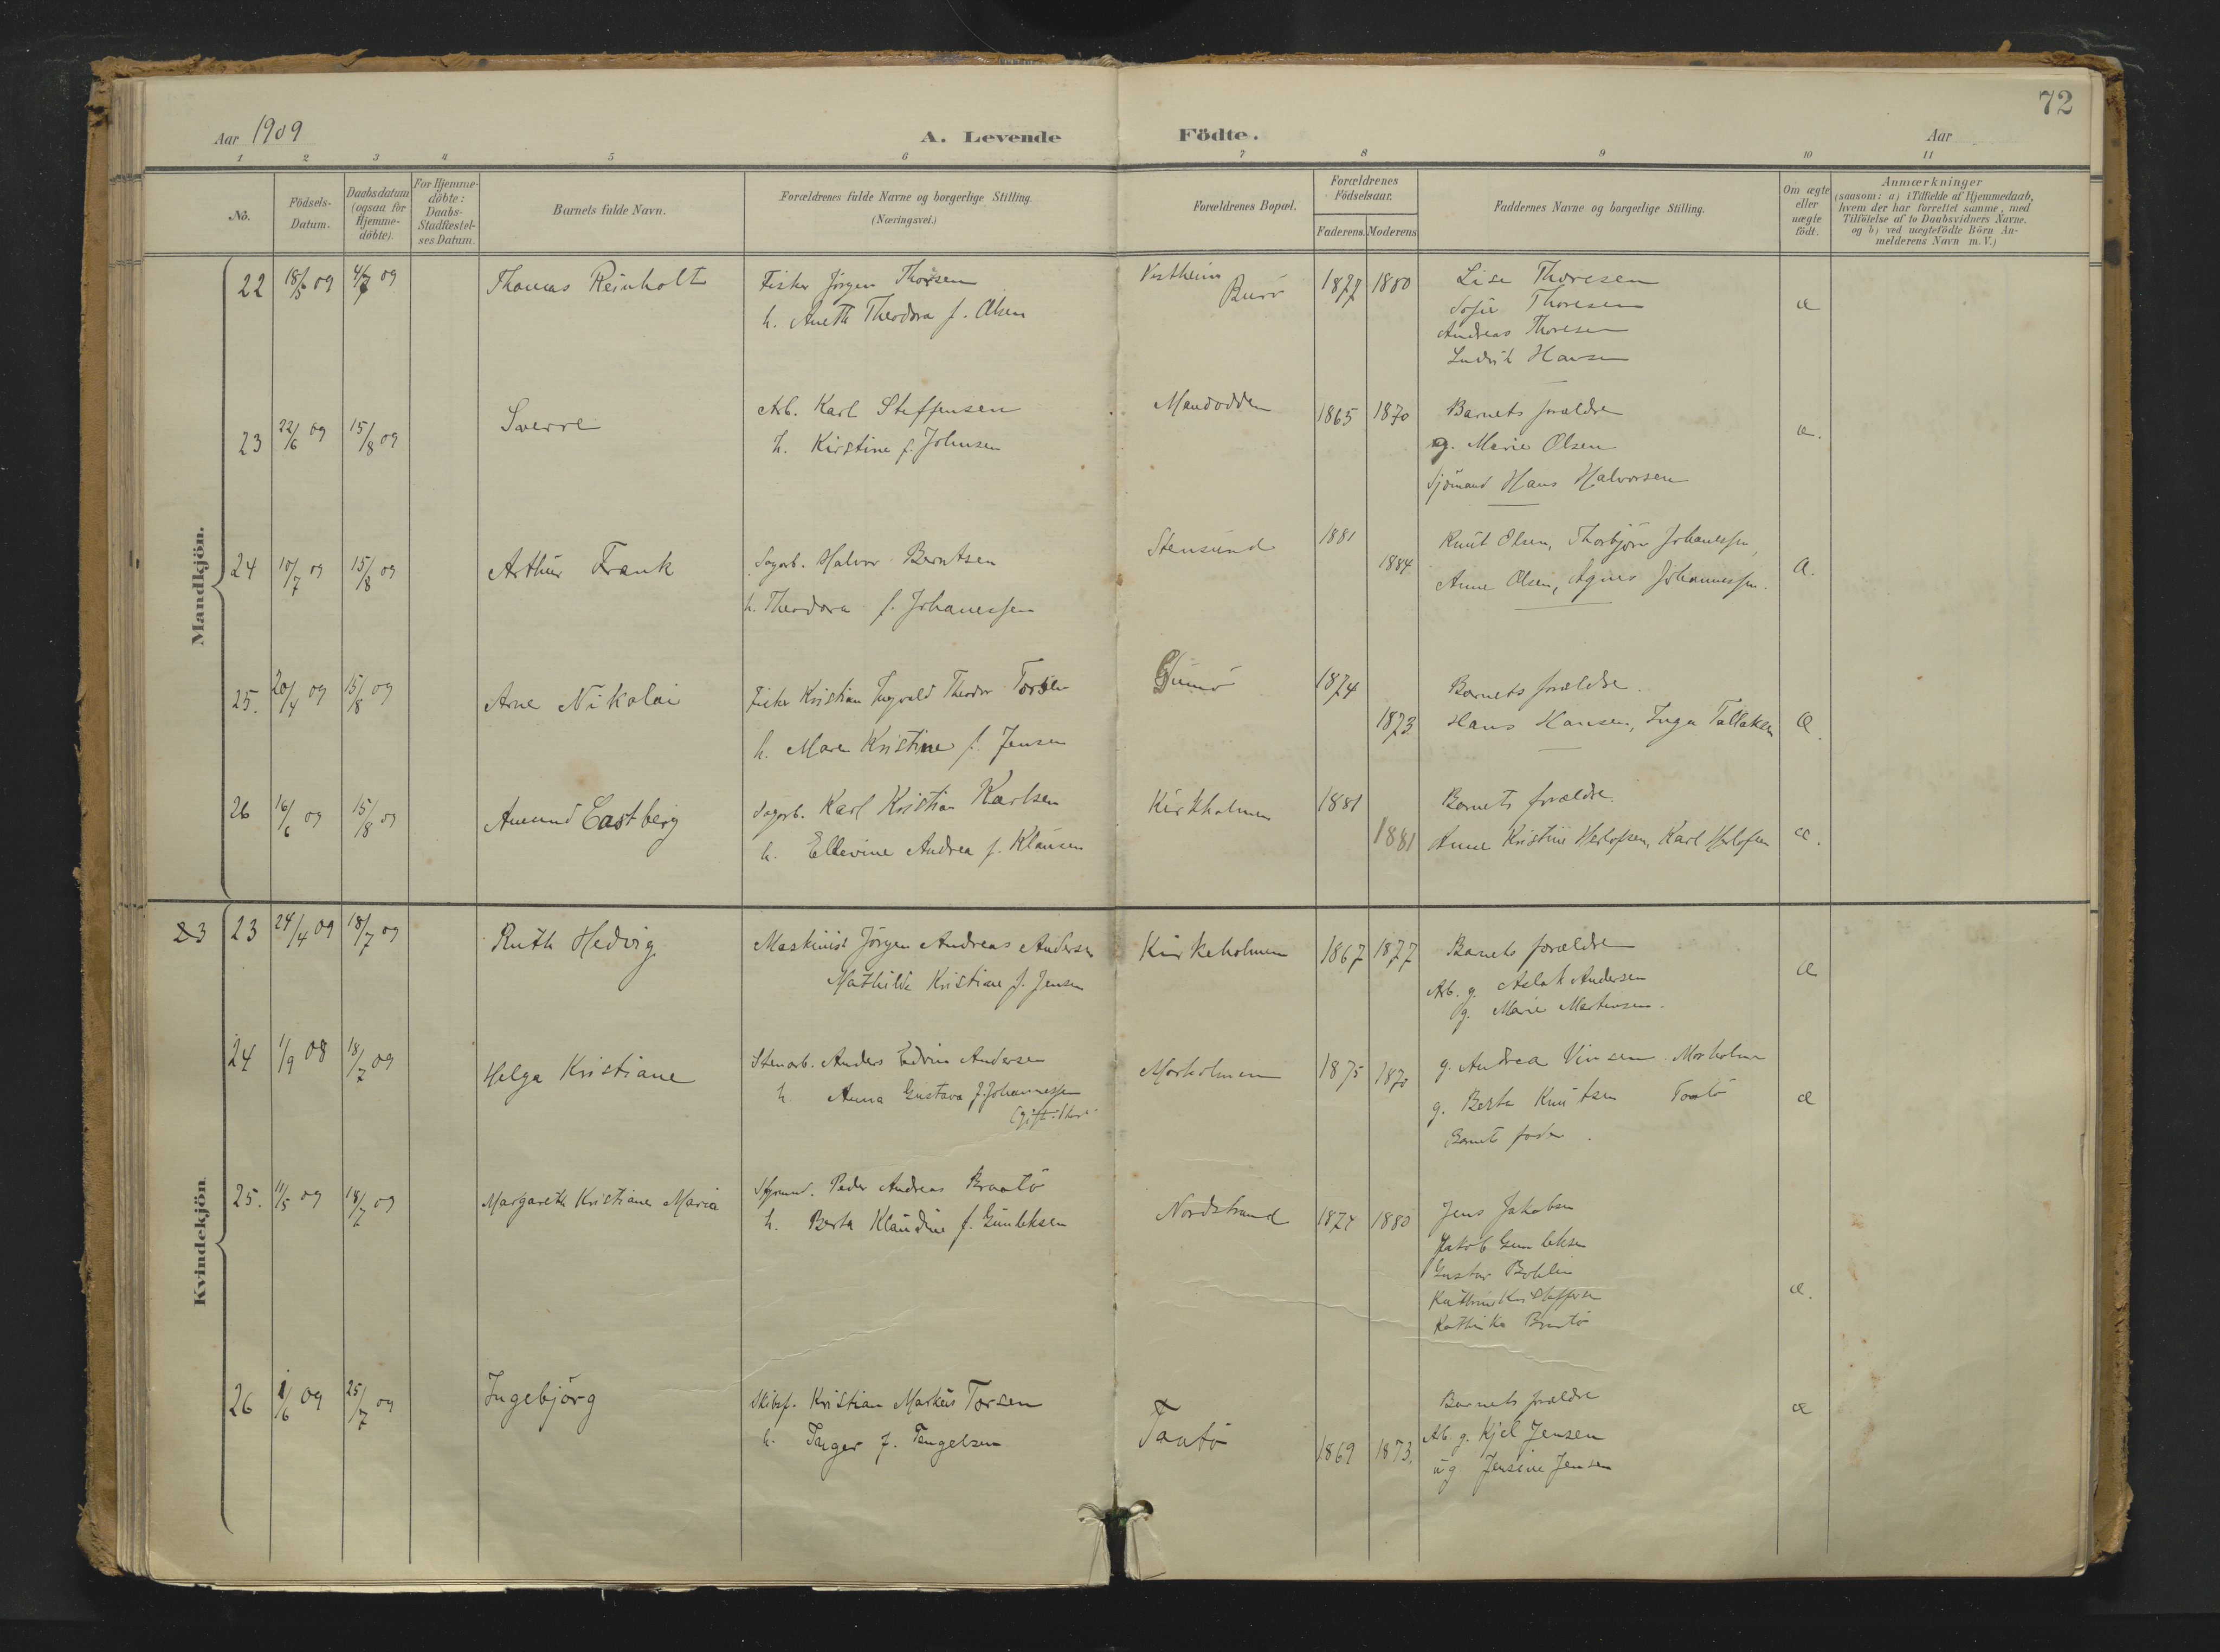 72
Aar 1909
A. Levende Födte.
Aar
1 2 3 4 5 6 7 8 9 10 11
No.
Födsels-
Datum.
Daabsdatum
(ogsaa för
Hjemme-
döbte).
For Hjemme-
döbte:
Daabs-
Stadfæstel-
ses Datum.
Barnets fulde Navn.
Forældrenes fulde Navne og borgerlige Stilling.
(Næringsvei.)
Forældrenes Bopæl.
Forældrenes
Födselsaar.
Faderens. Moderens
Faddernes Navne og borgerlige Stilling.
Om ægte
eller
uægte
födt.
Anmærkninger
(saasom: a) i Tilfælde af Hjemmedaab,
hvem der har forrettet samme, med
Tilföielse af to Daabsvidners Navne,
og b) ved uægtefödte Börn An-
melderens Navn m. V.)
Mandkjön.
22 18/5 09 4/7 09 Thomas Reinholt
Fisker Jörgen Thorsen
h. Aneth Theodora f. Olsen
Vestheim
Burö
1877 1880
Lise Thoresen
Sofie Thoresen
Andreas Thoresen
Ludvik Hansen
æ
23 22/6 09 15/8 09 Sverre
Arb. Karl Steffensen
h. Kirstine f. Johnsen
Mandodden
1865 1870
Barnets forældre
g. Marie Olsen
Sjömand Hans Halvorsen
æ.
24 10/7 09 15/8 09 Arthur Frank
Sagarb. Halvor Berntsen
h. Theodora f. Johanessen
Stensund
1881
1884
Knut Olsen, Thorbjörn Johanessen,
Anne Olsen, Agnes Johannessen.
Æ.
25. 20/4 09 15/8 09 Arne Nikolai
Fisker Kristian Ingvald Theodor Torsen
h. Maren Kristine f. Jensen
Gumö
1874
1873
Barnets forældre.
Hans Hansen, Inga Tallaksen
Æ.
26 16/6 09 15/8 09 Amund Castberg
Sagarb. Karl Kristian Karlsen
h. Ellevine Andrea f. Klausen
Kirkholmen
1881
1881
Barnets forældre.
Anne Kristine Herlofsen, Karl Herlofsen
æ.
Kvindekjön.
23 23 24/4 09 18/7 09 Ruth Hedvig
Maskinist Jörgen Andreas Andersen
Mathilde Kristiane f. Jensen
Kirkeholmen
1867 1877
Barnets forældre
Arb. g. Aslak Andersen
g. Marie Martinsen.
æ
24 1/9 08 18/7 09 Helga Kristiane
Stenarb. Anders Edvin Andersen
h. Anna Gustava f. Johannessen
Morholmen
1875 1870
g. Andrea Vinsem Morholmen
g. Berta Knutsen Toatö
Barnets fader.
æ
25. 11/5 09 18/7 09 Margareth Kristiane Maria
Styrmd. Peder Andreas Braatö
h. Berta Klaudine f. Gunleksen
Nordstrand
1874 1880
Jens Jakobsen
Jakob Gunleksen
Gustav Bohlin
Kathrine Kristoffersen
Kathinka Braatö
æ.
26 1/6 09 25/7 09 Ingebjörg
Skibsf. Kristian Markus Torsen
h. Inger f. Tengelsen
Taatö
1869 1873.
Barnets forældre
Arb. g. Kjel Jensen
ug Jensine Jensen
æ